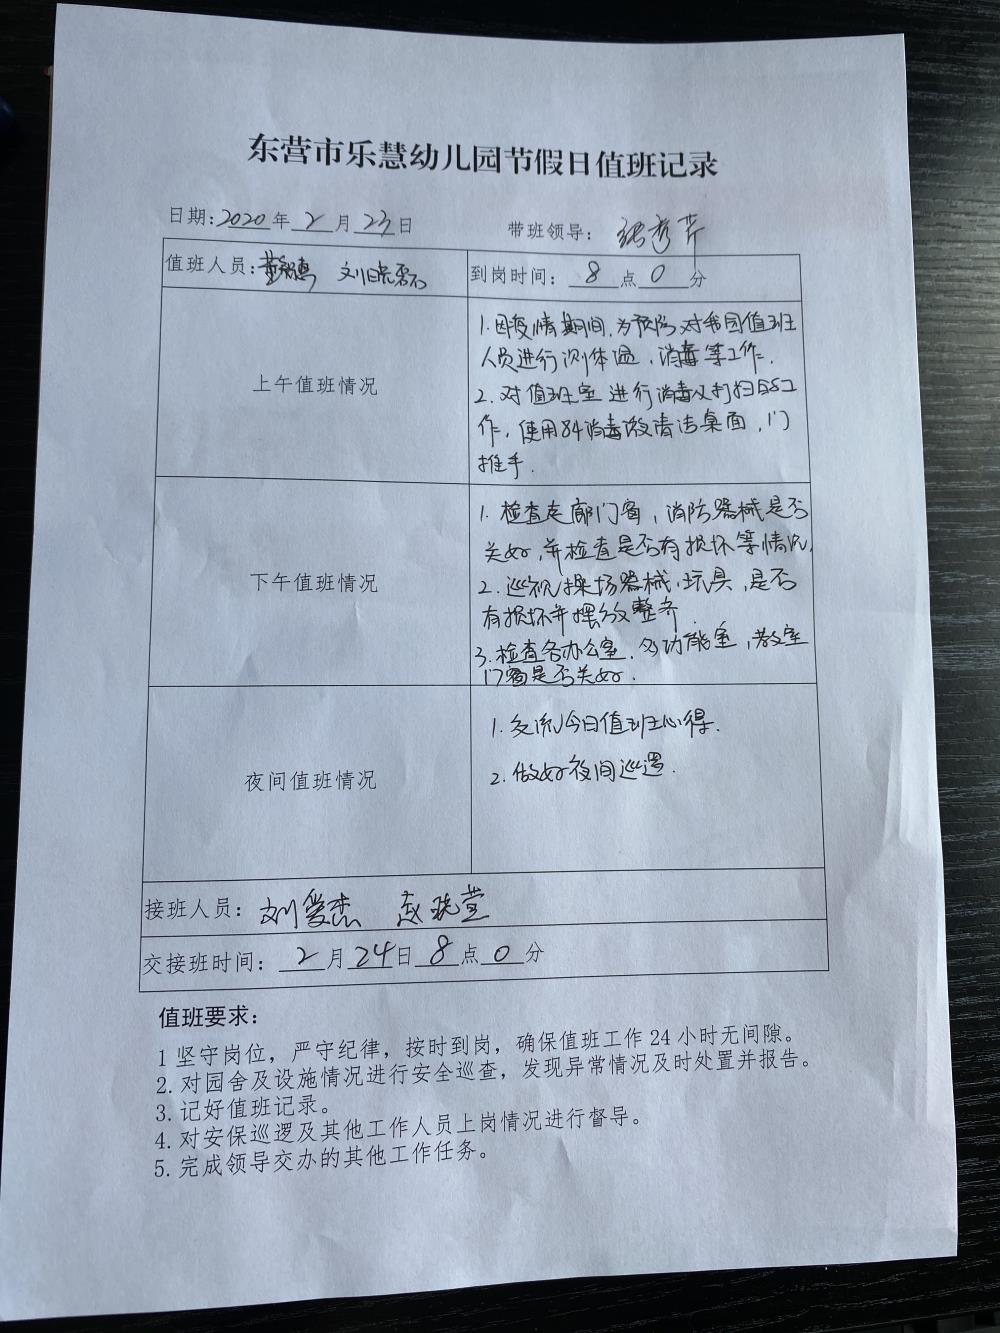 东营市乐慧幼儿园节假日值班记录
日期:2020年2月23日 带班领导: 张秀芹
值班人员: 刘晓磊 到岗时间: 8点0分
上午值班情况
1.因疫情期间,为预防对我园值班
人员进行测体温、消毒等工作.
2.对值班室进行消毒及打扫的工
作,使用84消毒液清洁桌面,门
推手.
下午值班情况
1.检查走廊门窗,消防器械是否
关好,并检查是否有损坏等情况.
2.巡视操场器械、玩具,是否
有损坏并摆放整齐.
3.检查各办公室、多功能室,教室
门窗是否关好.
夜间值班情况
1.交流今日值班心得.
2.做好夜间巡逻.
接班人员: 刘爱杰
交接班时间: 2月24日8点0分
值班要求:
1 坚守岗位，严守纪律，按时到岗，确保值班工作24小时无间隙。
2. 对园舍及设施情况进行安全巡查，发现异常情况及时处置并报告。
3. 记好值班记录。
4. 对安保巡逻及其他工作人员上岗情况进行督导。
5. 完成领导交办的其他工作任务。